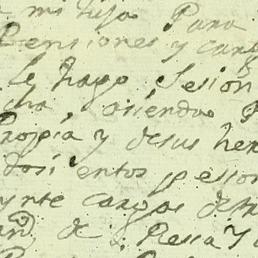 a mi hijo Para
Pensiones y carg
le hago Sesion
cha, asiendo
Propia y desus her
dosientos pesso
ynte cargos de
de